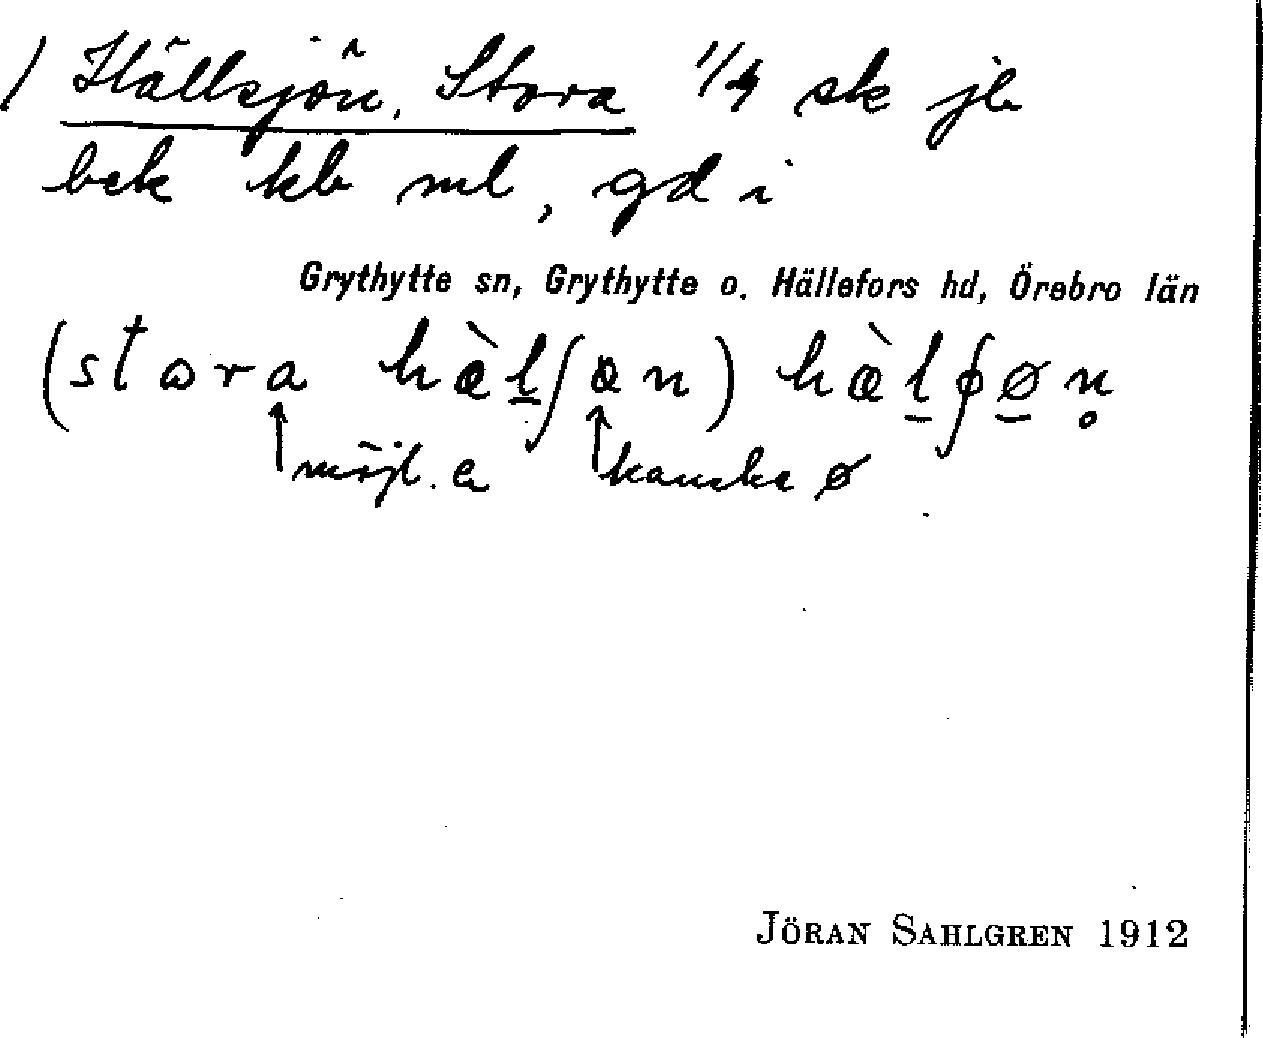 / Hällsjön, Stora 1/4 sk jb
bek kb ml, gd i
Grythytte sn, Grythytte o. Hällefors hd, Örebro län
(stωra hæ̀l̲ʃøn) hæ̀l̲ʃø̲n̥
möjl. a kanske ø
JÖRAN SAHLGREN 1912